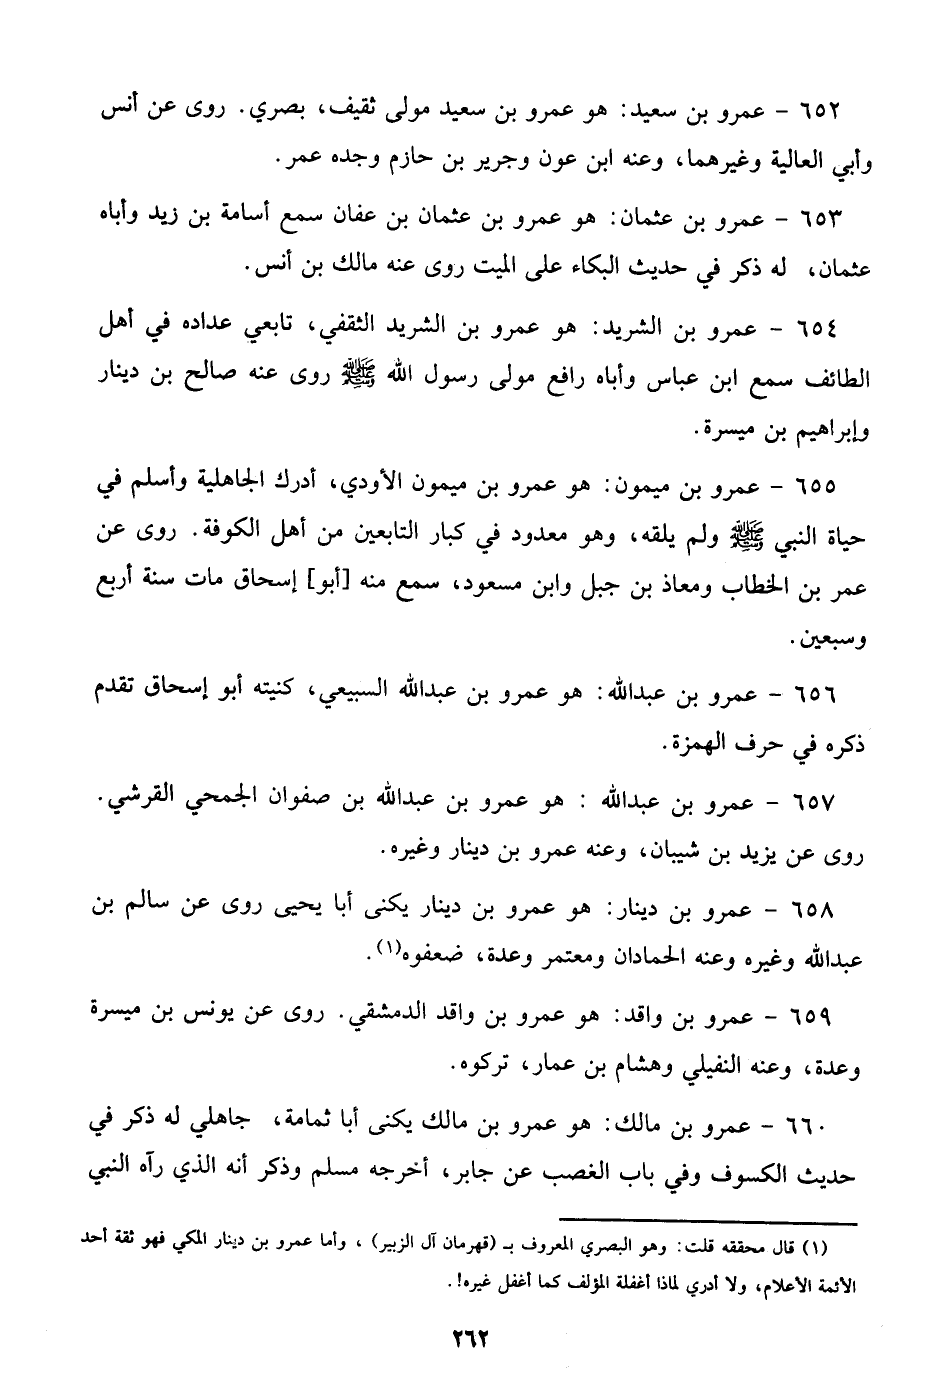 ٦٥٢ - عمرو بن سعيد: هو عمرو بن سعيد مولى ثقيف، بصري. روى عن أنس
وأبي العالية وغيرهما، وعنه ابن عون وجرير بن حازم وجده عمر.
٦٥٣ - عمرو بن عثمان: هو عمرو بن عثمان بن عفان سمع أسامة بن زيد وأباه
عثمان، له ذكر في حديث البكاء على الميت روى عنه مالك بن أنس.
٦٥٤ - عمرو بن الشريد: هو عمرو بن الشريد الثقفي، تابعي عداده في أهل
الطائف سمع ابن عباس وأباه رافع مولى رسول الله ﷺ روى عنه صالح بن دينار
وإبراهيم بن ميسرة.
٦٥٥ - عمرو بن ميمون: هو عمرو بن ميمون الأودي، أدرك الجاهلية وأسلم في
حياة النبي ﷺ ولم يلقه، وهو معدود في كبار التابعين من أهل الكوفة. روى عن
عمر بن الخطاب ومعاذ بن جبل وابن مسعود، سمع منه [أبو] إسحاق مات سنة أربع
وسبعين.
٦٥٦ - عمرو بن عبدالله: هو عمرو بن عبدالله السبيعي، كنيته أبو إسحاق تقدم
ذكره في حرف الهمزة.
٦٥٧ - عمرو بن عبدالله : هو عمرو بن عبدالله بن صفوان الجمحي القرشي.
روى عن يزيد بن شيبان، وعنه عمرو بن دينار وغيره.
٦٥٨ - عمرو بن دينار: هو عمرو بن دينار يكنى أبا يحيى روى عن سالم بن
عبدالله وغيره وعنه الحمادان ومعتمر وعدة، ضعفوه(١).
٦٥٩ - عمرو بن واقد: هو عمرو بن واقد الدمشقي. روى عن يونس بن ميسرة
وعدة، وعنه النفيلي وهشام بن عمار، تركوه.
٦٦٠ - عمرو بن مالك: هو عمرو بن مالك يكنى أبا ثمامة، جاهلي له ذكر في
حديث الكسوف وفي باب الغصب عن جابر، أخرجه مسلم وذكر أنه الذي رآه النبي
(١) قال محققه قلت: وهو البصري المعروف بـ (قهرمان آل الزبير) ، وأما عمرو بن دينار المكي فهو ثقة أحد
الأئمة الأعلام، ولا أدري لماذا أغفلة المؤلف كما أغفل غيره!.
٢٦٢